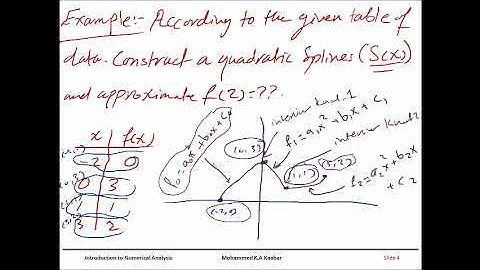 Example:- According to the given table of
data. Construct a quadratic Splines (S(x))
and approximate f(2)=??.
x f(x)
-2 0
0 3
1 1
3 2
(0,3)
(-2,0)
(1,1)
(3,2)
f₀=a₀x²+b₀x+c₀
interior knot 1
f₁=a₁x²+b₁x+c₁
interior knot 2
f₂=a₂x²+b₂x
+c2
Introduction to Numerical Analysis Mohammed K.A Kaabar Slide 4